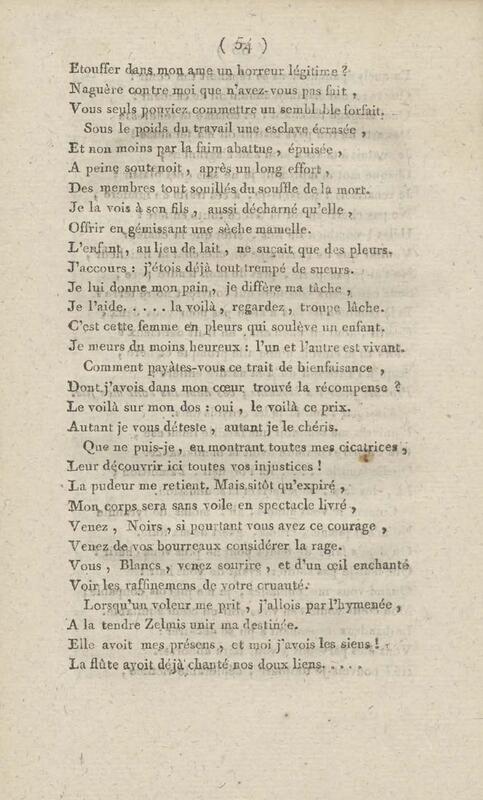 ( 54 )
Etouffer dans mon ame un horreur légitime ?
Naguère contre moi que n'avez-vous pas fait ,
Vous seuls pouviez commettre un semblable forfait.
Sous le poids du travail une esclave écrasée ,
Et non moins par la faim abattue , épuisée ,
A peine soutenoit , après un long effort ,
Des membres tout souillés du souffle de la mort.
Je la vois à son fils , aussi décharné qu'elle ,
Offrir en gémissant une sèche mamelle.
L'enfant , au lieu de lait , ne suçait que des pleurs.
J'accours : j'étois déjà tout trempé de sueurs.
Je lui donne mon pain , je diffère ma tâche ,
Je l'aide. . . . . la voilà , regardez , troupe lâche.
C'est cette femme en pleurs qui soulève un enfant.
Je meurs du moins heureux : l'un et l'autre est vivant.
Comment payâtes-vous ce trait de bienfaisance ,
Dont j'avois dans mon cœur trouvé la récompense ?
Le voilà sur mon dos : oui , le voilà ce prix.
Autant je vous déteste , autant je le chéris.
Que ne puis-je , en montrant toutes mes cicatrices ,
Leur découvrir ici toutes vos injustices !
La pudeur me retient. Mais sitôt qu'expiré ,
Mon corps sera sans voile en spectacle livré ,
Venez , Noirs , si pourtant vous avez ce courage ,
Venez de vos bourreaux considérer la rage.
Vous , Blancs , venez sourire , et d'un œil enchanté
Voir les raffinemens de votre cruauté.
Lorsqu'un voleur me prit , j'allois par l'hymenée ,
A la tendre Zelmis unir ma destinée.
Elle avoit mes présens , et moi j'avois les siens !
La flûte avoit déjà chanté nos doux liens. . . . .